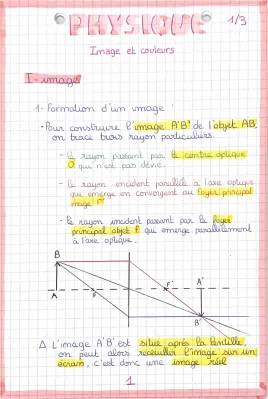 PHYSIQUE
1/3
Image et couleurs
I - images
1- Formation d'un image
• Pour construire l'image A'B' de l'objet AB,
on trace trois rayon particuliers.
- le rayon passant par le centre optique
O qui n'est pas dévié.
- le rayon incident parallèle à l'axe optique
que emerge en convergeant au foyer principal
image F'
- le rayon incident passant par le foyer
principal objet F qui emerge parallèlement
à l'axe optique.
B
A
F
F'
A'
B'
Δ L'image A'B' est situe après la lentille
on peut alors recueillir l'image sur un
écran, c'est donc une image réel
1